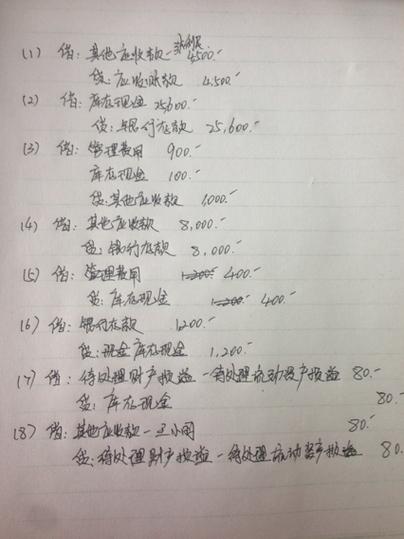 (1) 借: 其他应收款 4500.-
贷: 应收账款 4,500.-
(2) 借: 库存现金 25,600.-
贷: 银行存款 25,600.-
(3) 借: 管理费用 900.-
库存现金 100.-
贷: 其他应收款 1,000.-
(4) 借: 其他应收款 8,000.-
贷: 银行存款 8,000.-
(5) 借: 管理费用 1,200.- 400.-
贷: 库存现金 1,200.- 400.-
(6) 借: 银行存款 1200.-
贷: 现金 库存现金 1,200.-
(7) 借: 待处理财产损益-待处理流动资产损益 80.-
贷: 库存现金 80.-
(8) 借: 其他应收款-王小丽 80.-
贷: 待处理财产损益-待处理流动资产损益 80.